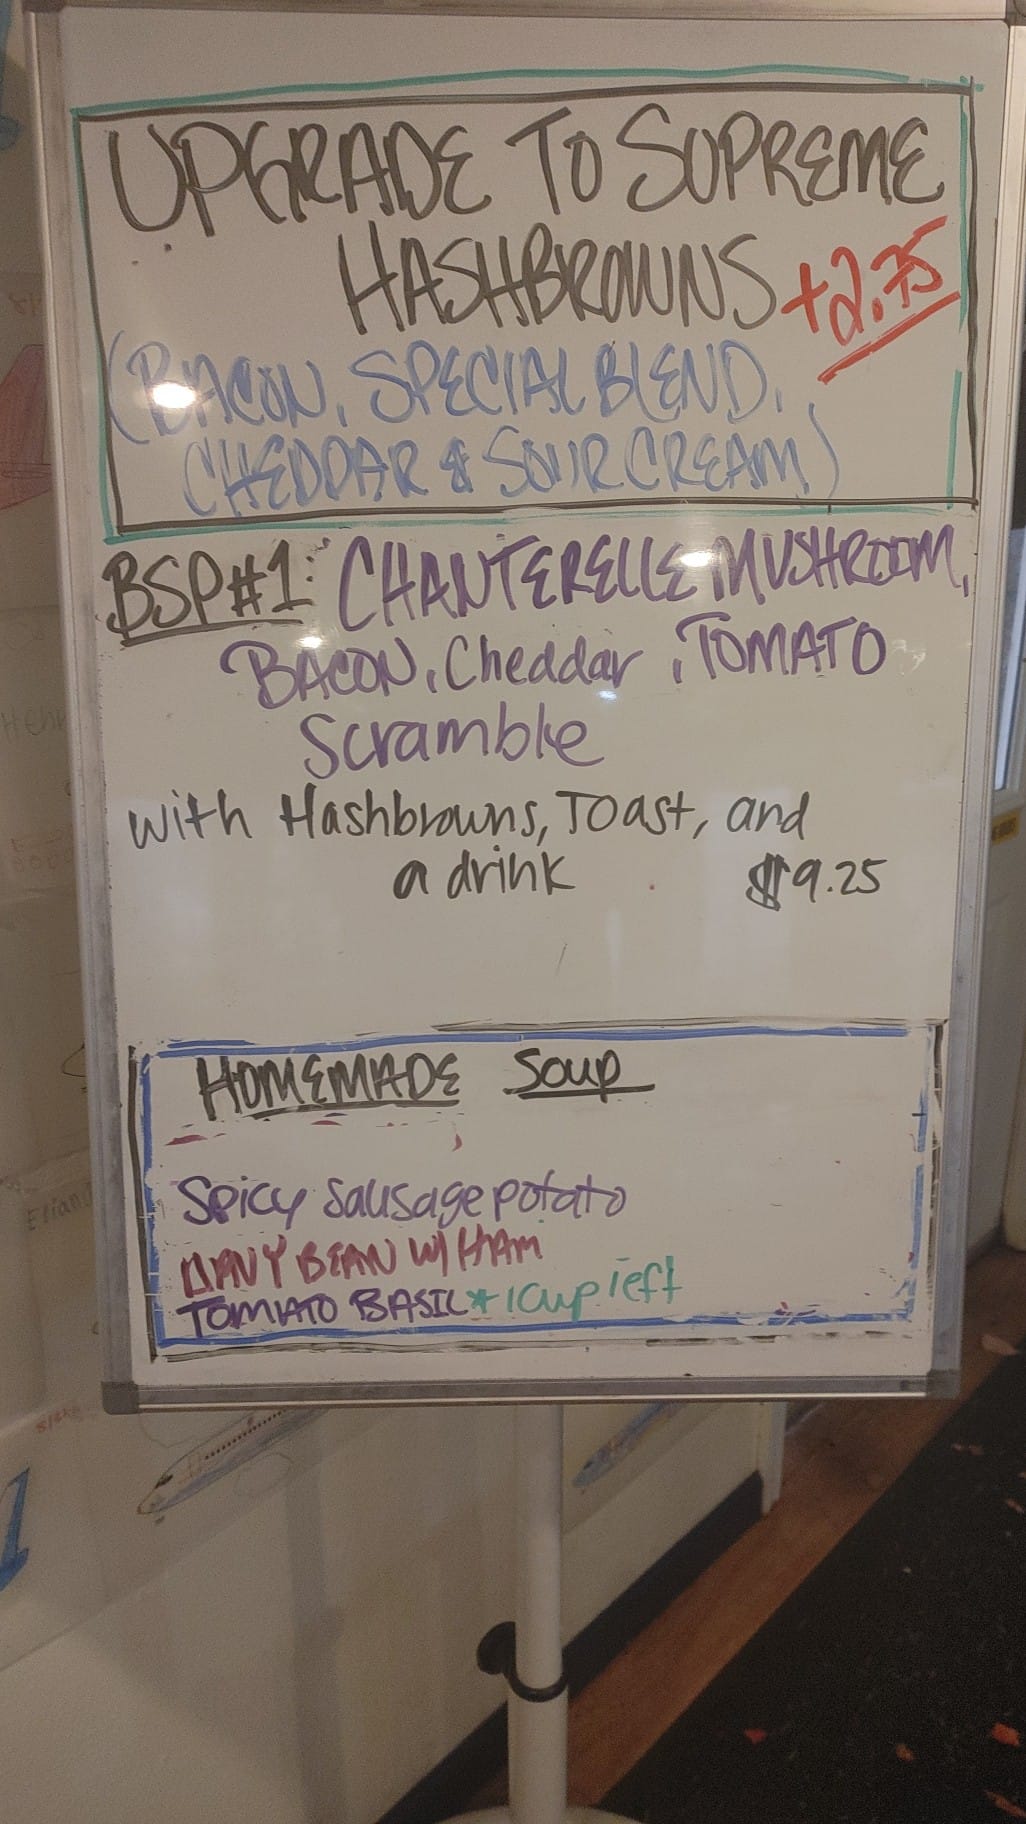 UPGRADE TO SUPREME
HASHBROWNS +2.75
(BACON, SPECIAL BLEND,
CHEDDAR & SOUR CREAM)
BSP#1: CHANTERELLE MUSHROOM,
BACON, Cheddar, TOMATO
Scramble
with Hashbrowns, Toast, and
a drink $9.25
HOMEMADE Soup
Spicy Sausage potato
NAVY BEAN W/ HAM
TOMATO BASIL * 1 cup left